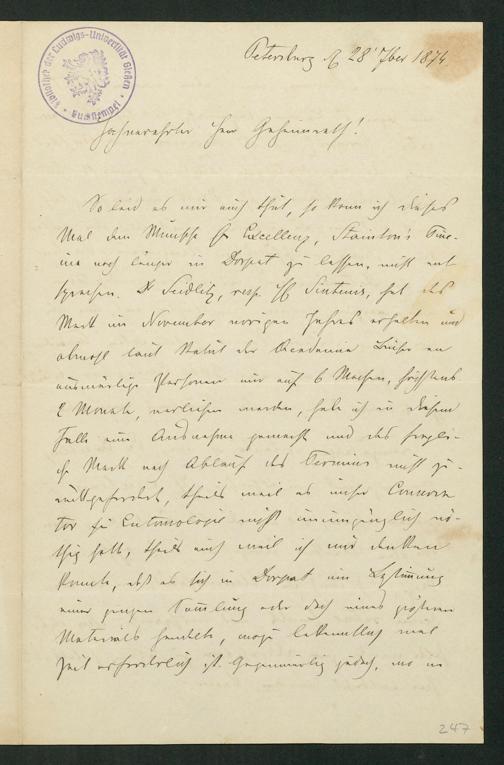 Bibliothek der Ludwigs-Universität Gießen
Petersburg d 28' 7ber 1874.
Hochverehrter Herr Geheimrath!
So leid es mir auch thut, so kann ich dieses
Mal dem Wunsche Sr Excellenz, Stainton's Tine-
ina noch länger in Dorpat zu lassen, nicht ent
sprechen. Dr Seidlitz, resp. Hr Sintenis, hat das
Werk im November vorigen Jahres erhalten und
obwohl laut Statut der Academie Bücher an
auswärtige Personen nur auf 6 Wochen, höchstens
2 Monate, verliehen werden, habe ich in diesem
Falle eine Ausnahme gemacht und das fragli-
che Werk nach Ablauf des Termins nicht zu-
rückgefordert, theils weil es unser Conserva
tor für Entomologie nicht unumgänglich nö-
thig hatte, theils auch weil ich mir denken
konnte, daß es sich in Dorpat um Bestimmung
einer ganzen Sammlung oder doch eines größeren
Materials handele, wozu bekanntlich viel
Zeit erforderlich ist. Gegenwärtig jedoch, wo
247